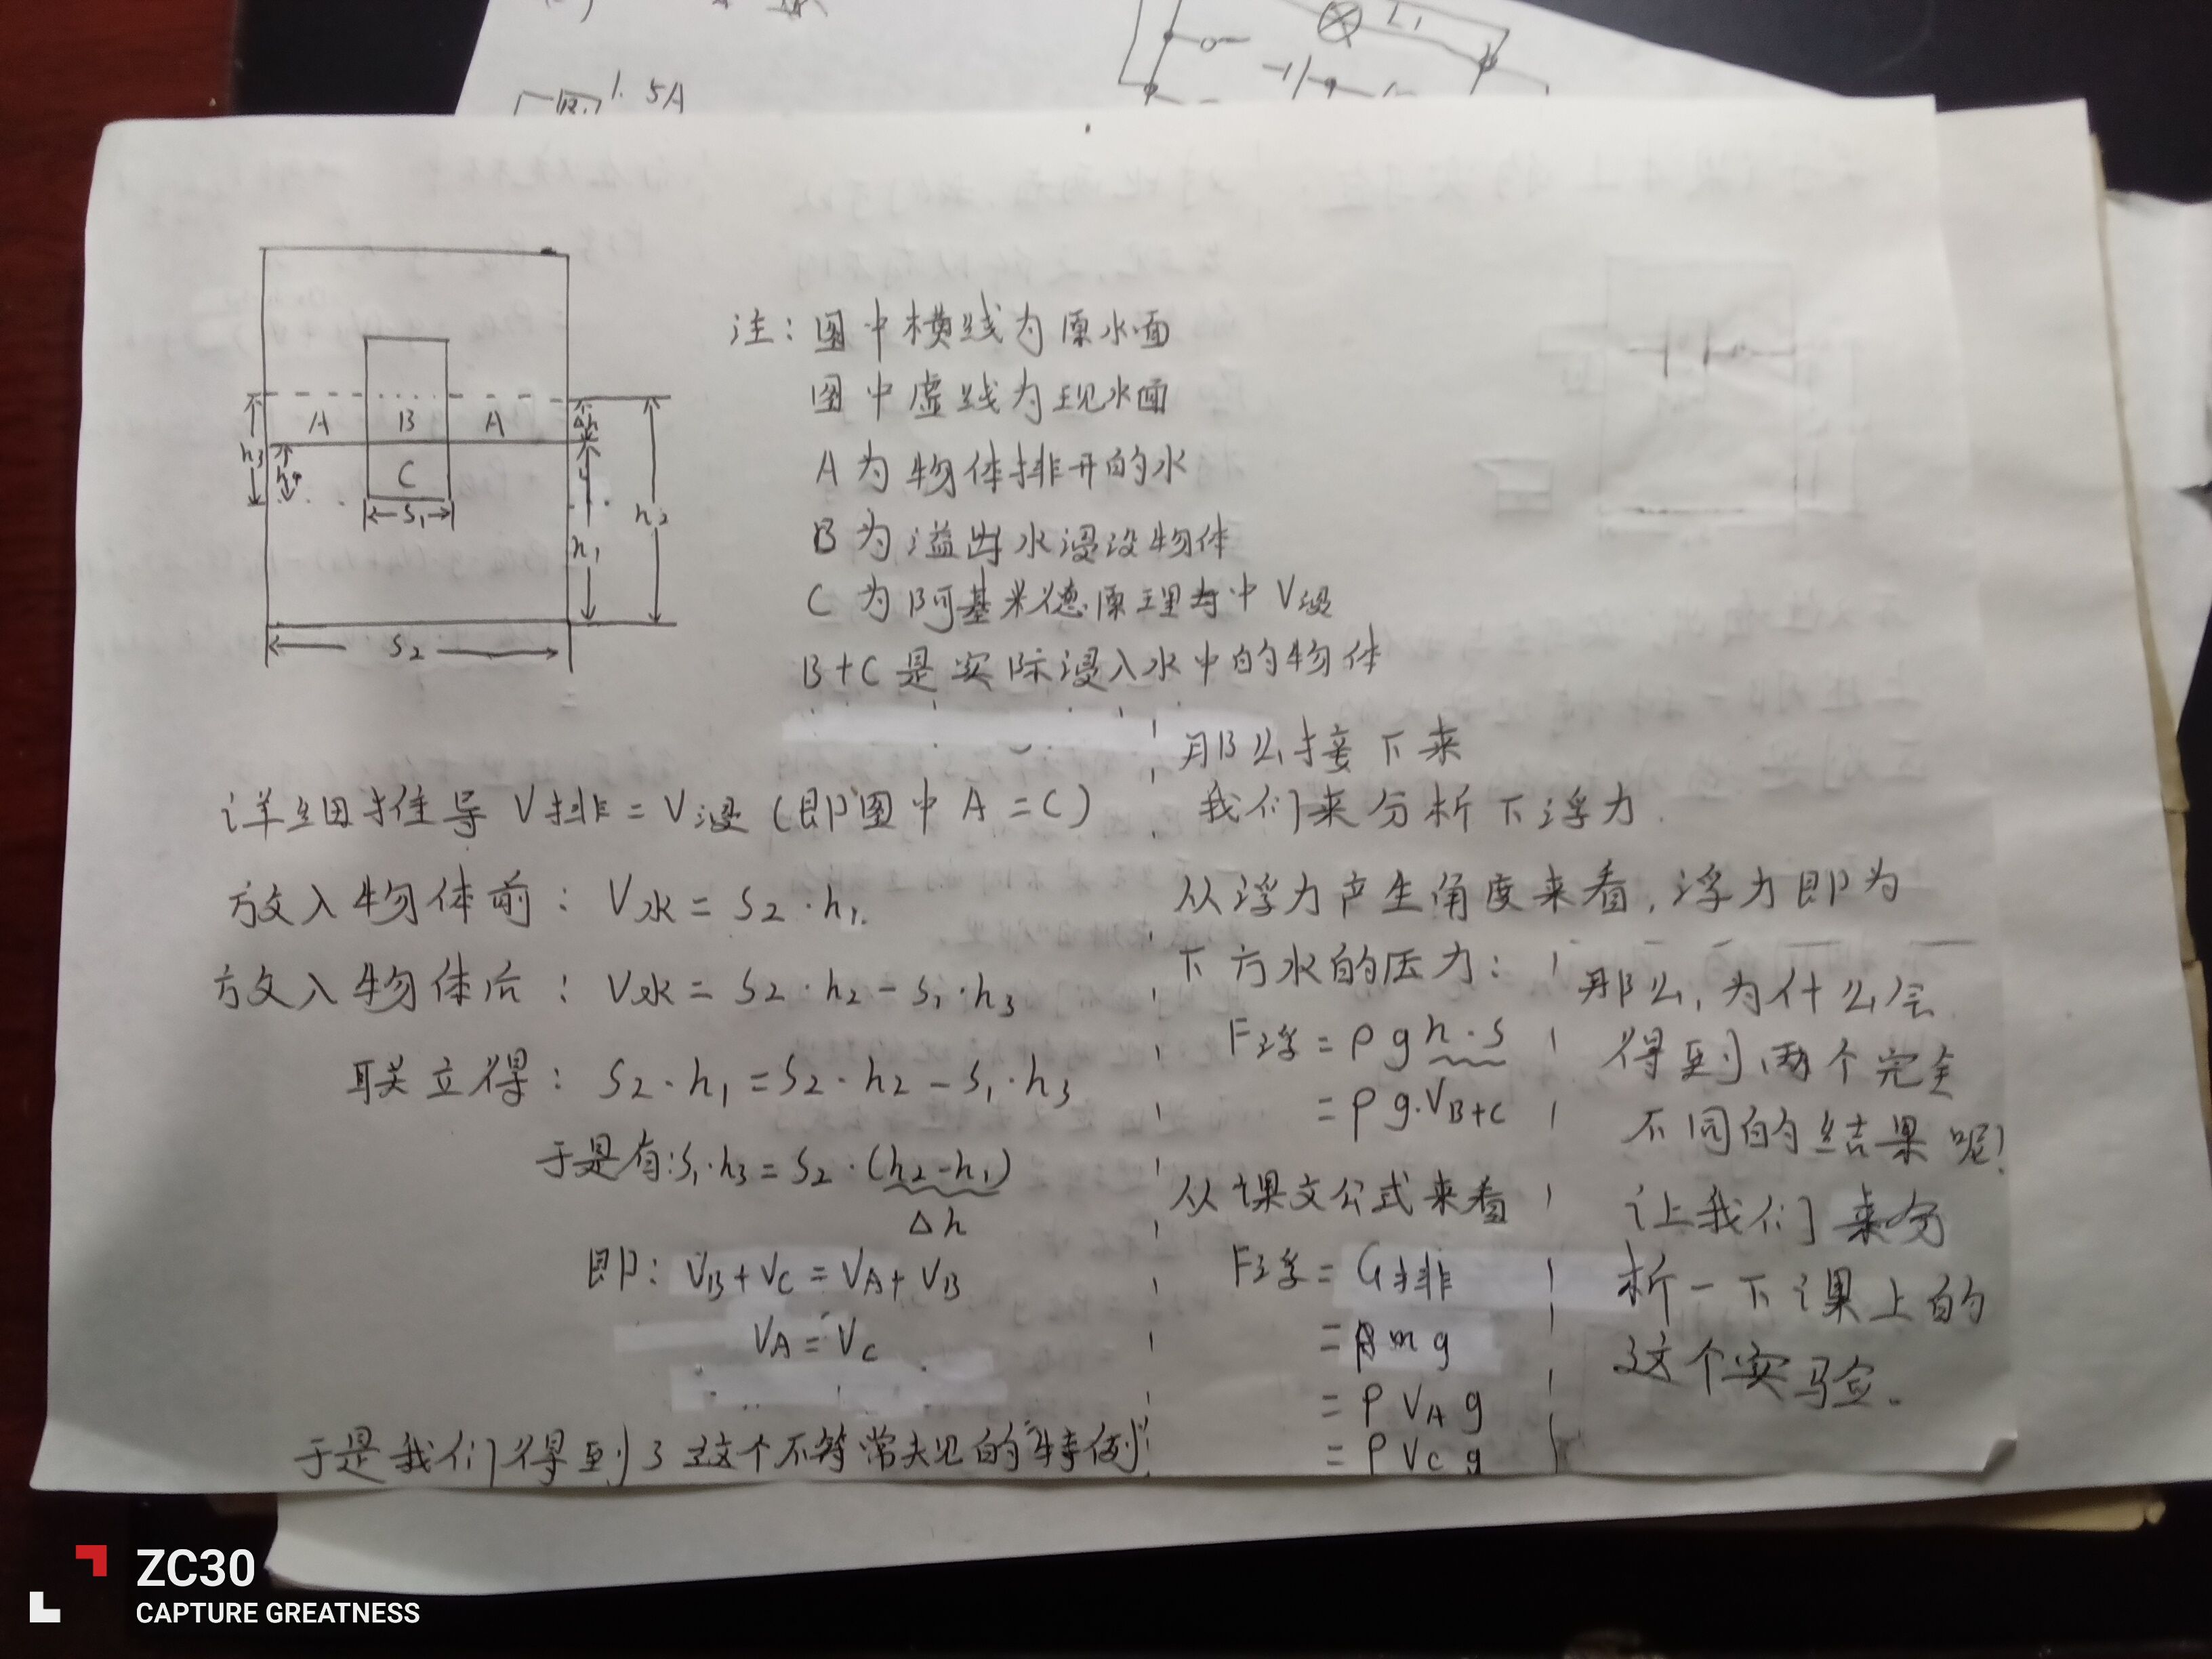 1.5A
L₁
注：图中横线为原水面
图中虚线为现水面
A为物体排开的水
B为溢出水浸没物体
C为阿基米德原理中V浸
B+C是实际浸入水中的物体
A B A
C
h₃
S₁
Δh
h₁
h₂
S₂
详细推导V排=V浸（即图中A=C）
放入物体前：V水=S₂·h₁
放入物体后：V水=S₂·h₂-S₁·h₃
联立得：S₂·h₁=S₂·h₂-S₁·h₃
于是有:S₁·h₃=S₂·(h₂-h₁)
Δh
即：V_B+V_C=V_A+V_B
V_A=V_C
于是我们得到了这个不符常见的"特例"
那么接下来
我们来分析下浮力
从浮力产生角度来看，浮力即为
下方水的压力：
F浮=ρgh·S
=ρg·V_B+C
从课文公式来看
F浮=G排
=mg
=ρV_A g
=ρV_C g
那么，为什么会
得到两个完全
不同的结果呢？
让我们来分
析一下课上的
这个实验。
ZC30
CAPTURE GREATNESS